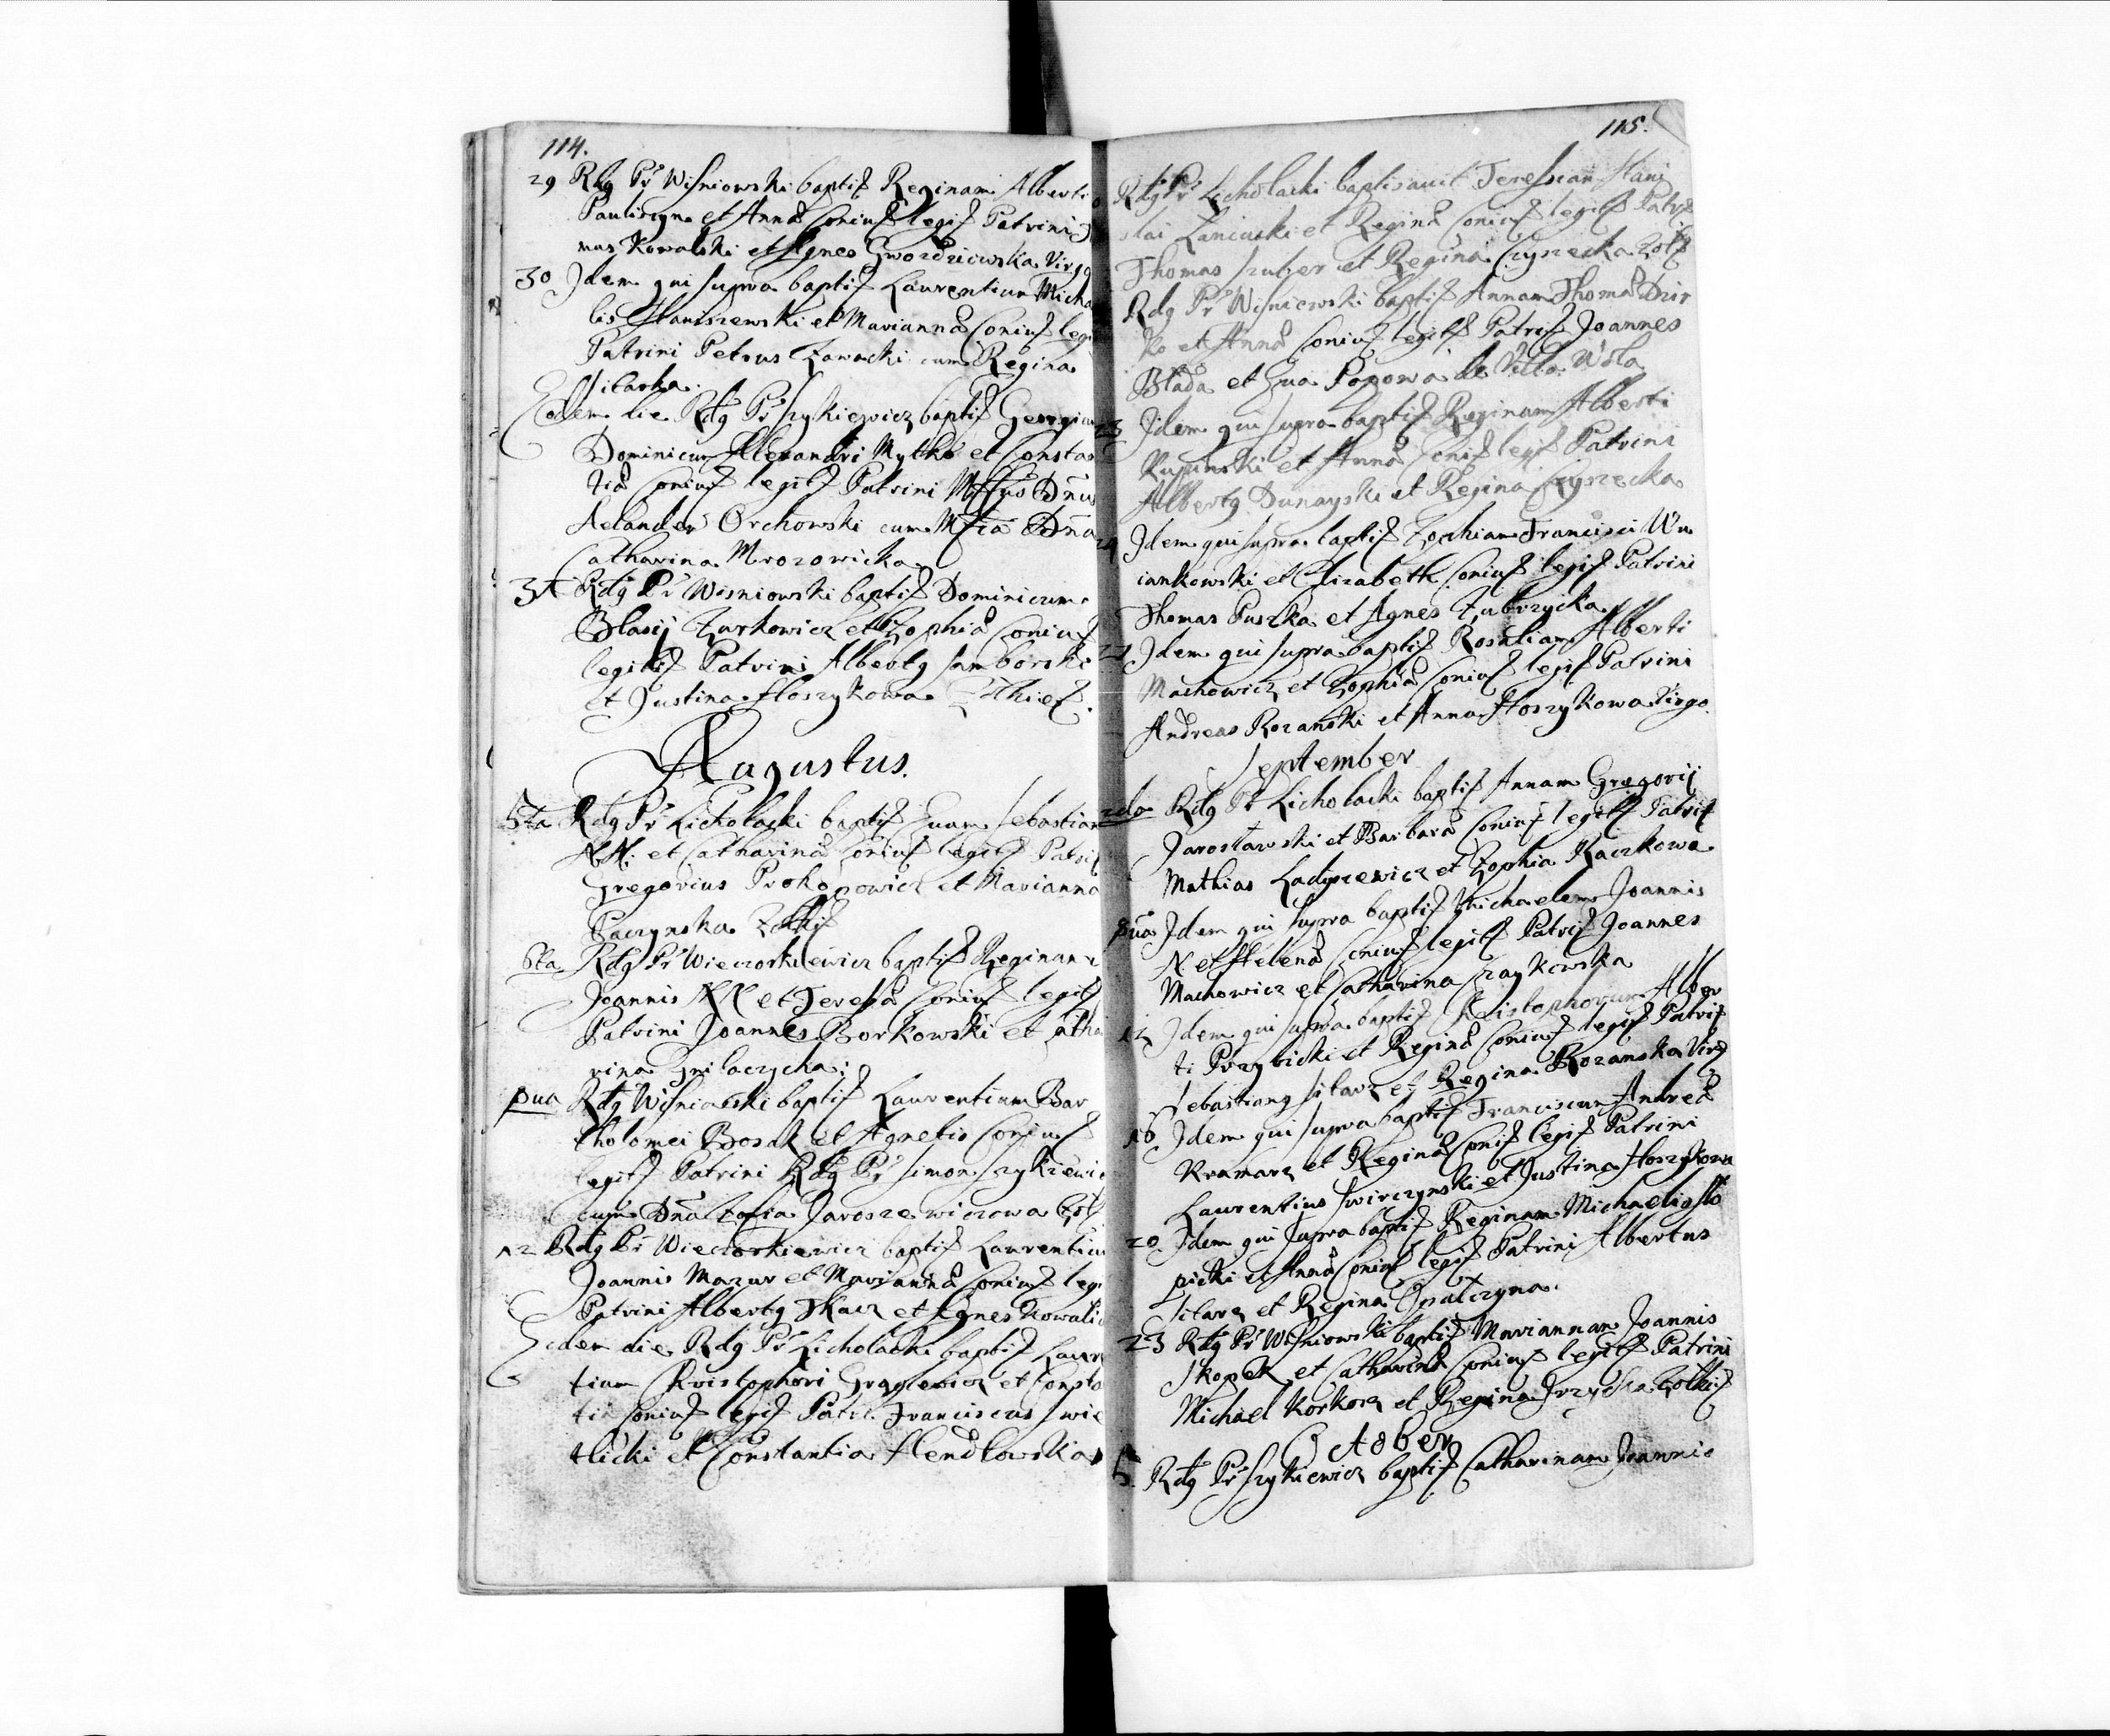 114.
29 Rdg Pr Wisniowski baptis Reginam Alberti
Pauliszyn et Annæ Coniug legis Patrini
nus Kowalski et Agnes Gwozdziewska Virgo
30 Idem qui supra baptis Laurentium Micha
lis Staniszewski et Mariannæ Coniug legi
Patrini Petrus Zawacki cum Regina
Sitarka.
Eodem die Rdg Pr Szykiewicz baptis Georgium
Dominicum Alexandri Mytko et Constan
tiæ Coniug legis Patrini Mffcus Dnus
Aelander Orchowski cum Mfca Dna
Catharina Mrozowicka
31 Rdg Pr Wisniowski baptis Dominicum
Blasij Zurkowicz et Zophiæ Coniug
legitis Patrini Albertg Samborski
et Justina Hoszykowa
Augustus.
5ta Rdg Pr Licholacki baptis Euam Sebastian
NN. et Catharinæ Coniug legit Patri
Gregorius Prokopowicz et Marianna
Paczynska
6ta Rdg Pr Wieczorkiewicz baptis Reginam
Joannis NN et Teresiæ Coniug legit
Patrini Joannes Borkowski et Catha
rina Gnilaczycha
pua Rdg Wisniowski baptis Laurentium Bar
tholomei Bosak et Agnetis Coniug
legit Patrini Rdg Pr Simon Szykiewi
cum Dna Zofia Jaroszewiczowa
12 Rdg Pr Wieczorkiewicz baptis Laurentium
Joannis Mazur et Mariannæ Coniug leg
Patrini Albertg Tkacz et Agnes Kowali
Eodem die Rdg Pr Licholacki baptis Lauren
tium Kristophori et Consta
tiæ Coniug legis Patri Franciscus Swie
tlicki et Constantia Hendlowska
115.
Rdg Pr Licholacki baptisauit Teressiam Stani
slai Laniucki et Reginæ Coniug legits Patri
Thomas Szuber et Regina Czyzecka
Rdg Pr Wisniewski baptis Annam Thomæ Dzir
ko et Annæ Coniug legits Patris Joannes
Blada et Eua Popowa de Villa Wola
23 Idem qui supra baptis Reginam Alberti
et Annæ Coniug legis Patrini
Albertg Dunayski et Regina Czyzecka
24 Idem qui supra baptis Zophiam Francisci Wu
iankowski et Elizabeth Coniug legis Patrini
Thomas Puszka et Agnes Zubrzycka
Idem qui supra baptis Rosaliam Alberti
Machowicz et Zophiæ Coniug legis Patrini
Andreas Rozanski et Anna Hoszykowa Virgo
September
2da Rdg Pr Licholacki baptis Annam Gregorij
Jaroslawski et Barbaræ Coniug legits Patris
Mathias Ladyzewicz et Zophia Kaczkowa
pua Idem qui supra baptis Michaelem Joannis
N et Helenæ Coniug legits Patris Joannes
Machowicz et Catharina Czaykowska
12 Idem qui supra baptis Kristophorum Alber
ti Przybicki et Reginæ Coniug legis Patris
Sebastiang Sitarz et Regina Rozanska Virg
16 Idem qui supra baptis Franciscum Andreæ
Kramarz et Reginæ Coniug legis Patrini
Laurentius Swirczynski et Justina Hoszykowa
20 Idem qui supra baptis Reginam Michaelis Slo
picki et Annæ Coniug legis Patrini Albertus
Sitarz et Regina Opalczyna
23 Rdg Pr Wisniowski baptis Mariannam Joannis
Skopek et Catharinæ Coniug legits Patrini
Michael Korkosz et Regina
October
5 Rdg Pr Szykiewicz baptis Catharinam Joannis